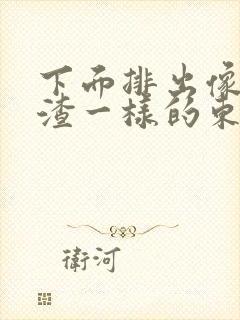 下而排出像
渣一样的东
衛河